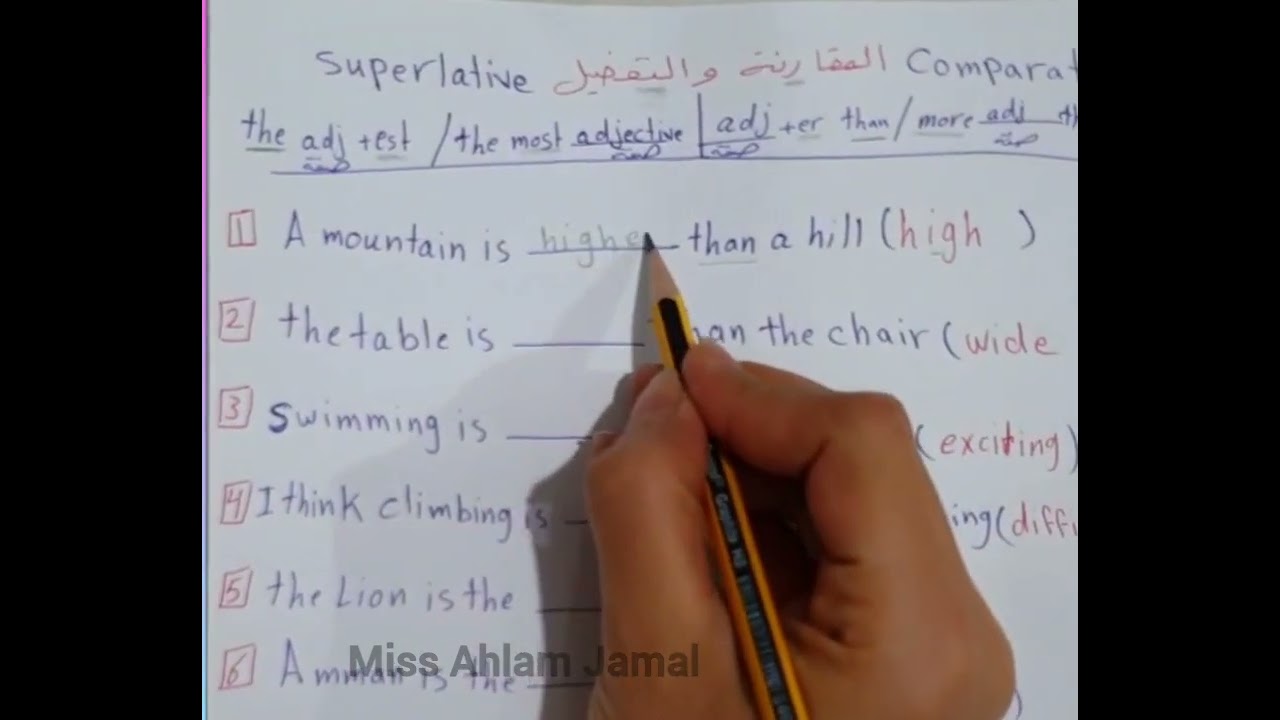 Superlative المقارنة والتفضيل Comparat
the adj + est / the most adjective | adj + er than / more adj th
صفة صفة صفة صفة
1 A mountain is highe than a hill (high )
2 the table is ______ han the chair (wide
3 Swimming is ______ (exciting)
4 I think climbing is ing (diffi
5 the Lion is the ______
6 Amman is the ______ )
Miss Ahlam Jamal